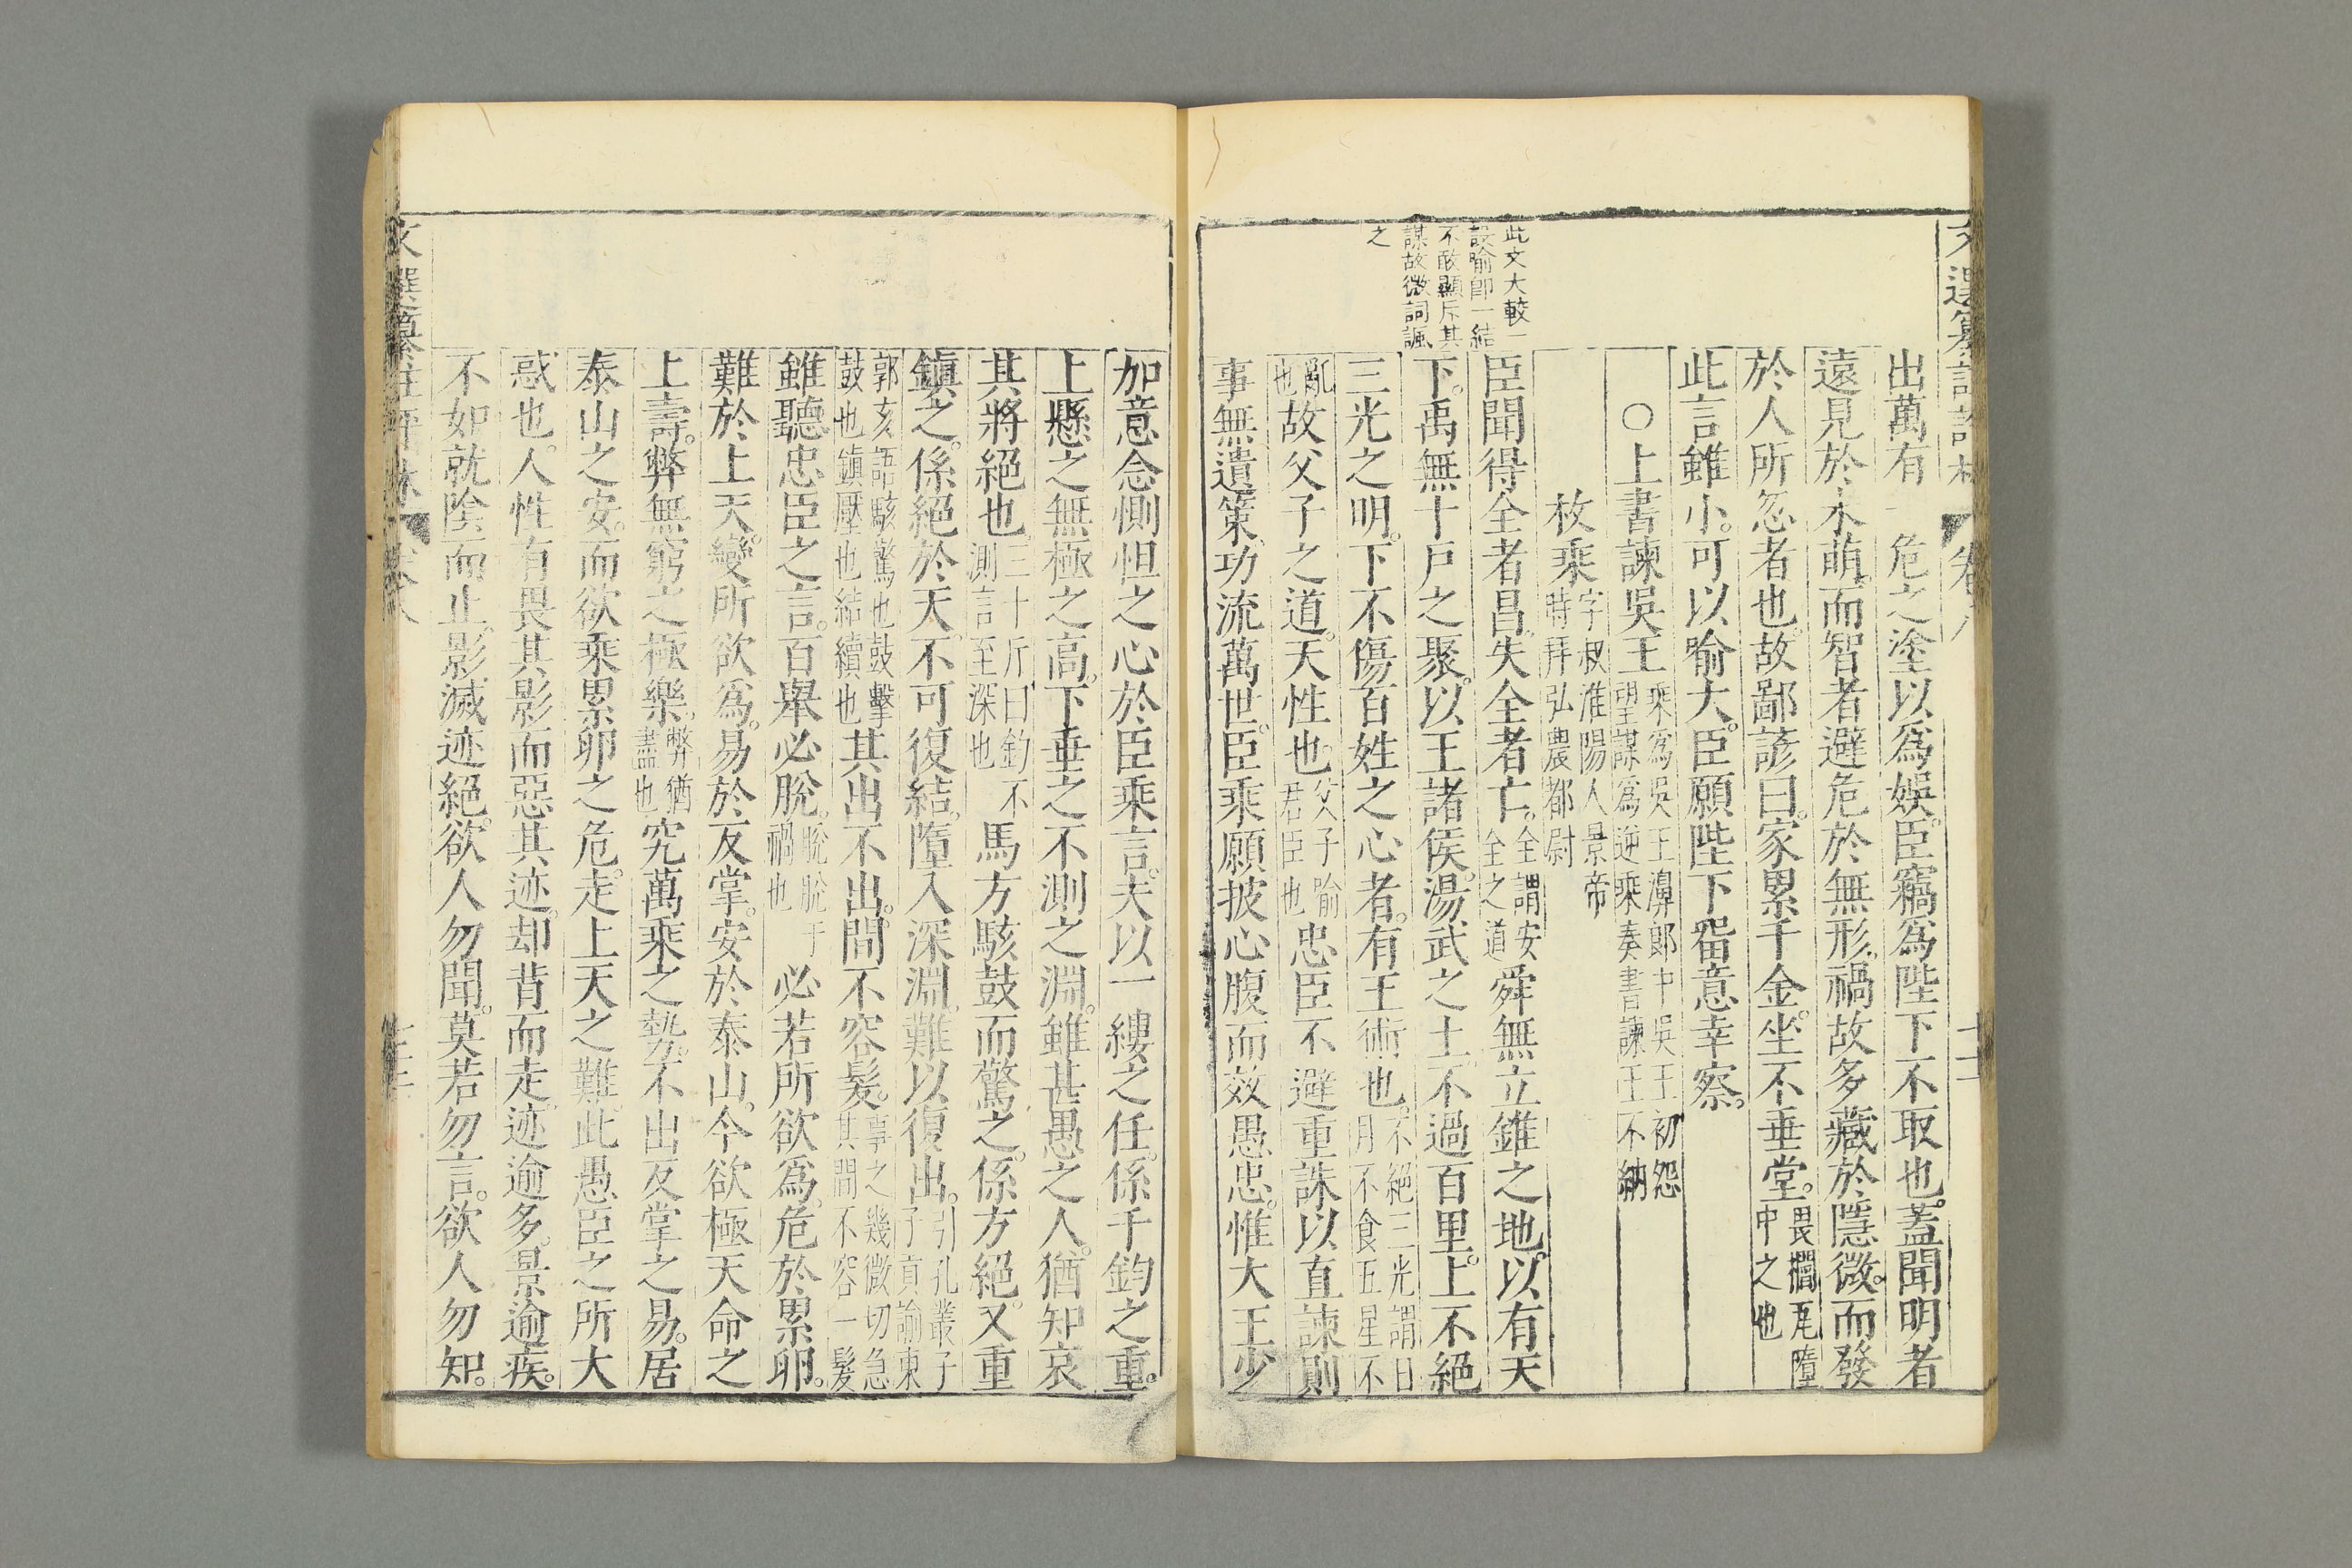 出萬有危之塗以爲娛臣竊爲陛下不取也蓋聞明者
遠見於未萌而智者避危於無形禍故多藏於隱微而發
於人所忽者也故鄙諺曰家累千金坐不垂堂畏櫩瓦墮
中之也
此言雖小可以喻大臣願陛下畱意幸察
○上書諫吳王乘爲吳王濞郎中吳王初怨
望謀爲逆乘奏書諫王不納
枚乘字叔淮陽人景帝
時拜弘農都尉
此文大較一
設喻卽一結
不敢顯斥其
謀故微詞諷
之
臣聞得全者昌失全者亡全謂安
全之道舜無立錐之地以有天
下禹無十戶之聚以王諸侯湯武之土不過百里上不絕
三光之明下不傷百姓之心者有王術也不絕三光謂日
月不食五星不
亂
也故父子之道天性也父子喻
君臣也忠臣不避重誅以直諫則
事無遺策功流萬世臣乘願披心腹而效愚忠惟大王少
加意念惻怛之心於臣乘言夫以一縷之任係千鈞之重
上懸之無極之高下垂之不測之淵雖甚愚之人猶知哀
其將絕也三十斤曰鈞不
測言至深也馬方駭鼓而驚之係方絕又重
鎮之係絕於天不可復結墮入深淵難以復出引孔叢子
子貢諭東
郭亥語駭驚也鼓擊
鼓也鎮壓也結續也其出不出間不容髮事之幾微切急
其間不容一髮
雖聽忠臣之言百舉必脫脫脫于
禍也必若所欲爲危於累卵
難於上天變所欲爲易於反掌安於泰山今欲極天命之
上壽弊無窮之極樂弊猶
盡也究萬乘之勢不出反掌之易居
泰山之安而欲乘累卵之危走上天之難此愚臣之所大
惑也人性有畏其影而惡其迹却背而走迹逾多景逾疾
不如就陰而止影滅迹絕欲人勿聞莫若勿言欲人勿知